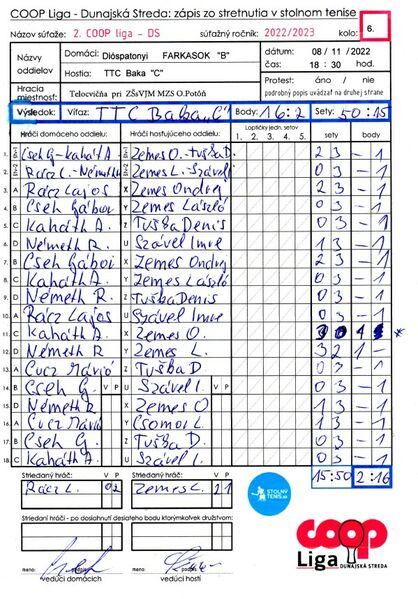 COOP Liga - Dunajská Streda: zápis zo stretnutia v stolnom tenise
Názov súťaže: 2. COOP liga - DS súťažný ročník: 2022/2023 kolo: 6.
Názov oddielov
Domáci: Dióspatonyi FARKASOK "B"
Hostia: TTC Baka "C"
dátum: 08 / 11 / 2022
čas: 18 : 30 hod.
Hracia miestnosť: Telocvičňa pri ZŠsVJM MZS O.Potôň
Protest: áno / nie
podrobný popis uvádzať na druhej strane
Výsledok: Víťaz: TTC Baka "C" Body: 16:2 Sety: 50:15
Hráči domáceho oddielu: Hráči hosťujúceho oddielu: Loptičky jedn. setov sety body
1. 2. 3. 4. 5.
1. Cseh G - Kaháth A Zemes O. - Tuška D. 2 3 - 1
2. Rácz L. - Németh R Zemes L. - Szável I. 0 3 - 1
3. A Rácz Lajos X Zemes Ondrej 2 3 - 1
4. B Cseh Gábor Y Zemes László 0 3 - 1
5. C Kaháth A. Z Tuška Denis 0 3 - 1
6. D Németh R. U Szável Imre 1 3 - 1
7. B Cseh Gábor X Zemes Ondrej 0 3 - 1
8. C Kaháth A. Y Zemes László 0 3 - 1
9. D Németh R. Z Tuška Denis 0 3 - 1
10. A Rácz Lajos U Szável Imre 0 3 - 1
11. C Kaháth A. X Zemes O. *
12. D Németh R Y Zemes L. 3 2 1 -
13. A Cucz Márió Z Tuška D 1 3 - 1
14. B Cseh G. V P U Szável I. V P 0 3 - 1
15. D Németh R X Zemes O 1 3 - 1
16. A Cucz Márió Y Csomor L 1 3 - 1
17. B Cseh G Z Tuška D. 0 3 - 1
18. C Kaháth A. U Szável I. 0 3 - 1
Striedaný hráč: V P Striedaný hráč: V P 15:50 2:16
Rácz L. 0 2 Zemes L. 2 1
STOLNÝ TENIS.sk
Striedaní hráči - po dosiahnutí desiateho bodu ktorýmkoľvek družstvom:
meno podpis meno podpis
vedúci domácich vedúci hostí
coop
Liga DUNAJSKÁ STREDA